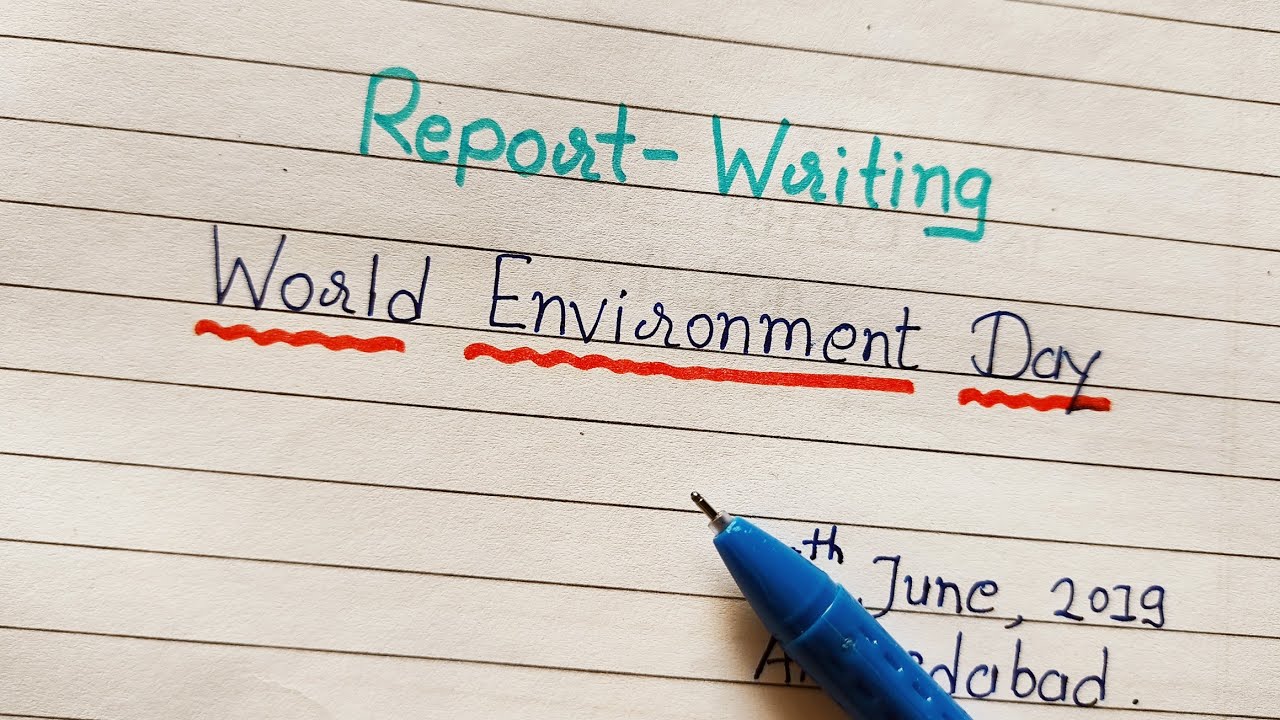 Report-Writing
World Environment Day
th June, 2019